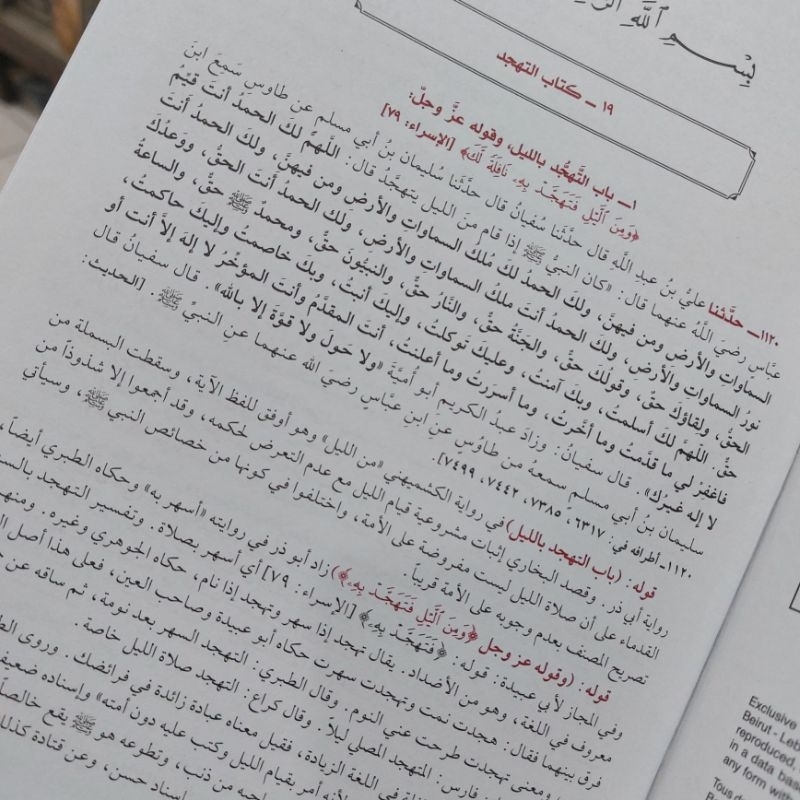 بِسْمِ ٱللَّهِ
١٩ ـ كتاب التهجد
١ـ باب التَّهجُّد بالليل، وقوله عزَّ وجلَّ:
﴿وَمِنَ ٱلَّيْلِ فَتَهَجَّدْ بِهِۦ نَافِلَةً لَّكَ﴾ [الإسراء: ٧٩]
١١٢٠ـ حدَّثنا عليُّ بنُ عبدِ اللَّهِ قال حدَّثنا سُفيانُ قال حدَّثنا سُليمانُ بنُ أبي مسلم عن طاوسٍ سَمِعَ ابنَ
عبَّاسٍ رضيَ اللَّهُ عنهما قال: «كان النبيُّ ﷺ إذا قام مِنَ الليل يتهجَّدُ قال: اللَّهمَّ لكَ الحمدُ أنتَ قيِّمُ
السماواتِ والأرضِ ومن فيهنَّ، ولكَ الحمدُ لكَ مُلكُ السماواتِ والأرضِ ومن فيهنَّ، ولكَ الحمدُ أنتَ
نورُ السماواتِ والأرضِ، ولكَ الحمدُ أنتَ ملكُ السماواتِ والأرضِ، ولكَ الحمدُ أنتَ الحقُّ، ووَعدُكَ
الحقُّ، ولِقاؤكَ حقٌّ، وقولُكَ حقٌّ، والجنَّةُ حقٌّ، والنَّارُ حقٌّ، والنبيُّونَ حقٌّ، ومحمدٌ ﷺ حقٌّ، والساعةُ
حقٌّ. اللَّهمَّ لكَ أسلمتُ، وبكَ آمنتُ، وعليكَ توكلتُ، وإليكَ أنبتُ، وبكَ خاصمتُ وإليكَ حاكمتُ،
فاغفِرْ لي ما قدَّمتُ وما أخَّرتُ، وما أسررتُ وما أعلنتُ، أنتَ المقدِّمُ وأنتَ المؤخِّرُ لا إله إلاَّ أنت أو
لا إله غيرُك». قال سفيانُ: وزادَ عبدُ الكريمِ أبو أُميَّةَ «ولا حَولَ ولا قوَّةَ إلا بالله». قال سفيانُ قال
سليمانُ بنُ أبي مسلمٍ سمعهُ من طاوُسٍ عنِ ابنِ عبَّاسٍ رضيَ الله عنهما عنِ النبيِّ ﷺ. [الحديث:
١١٢٠ـ أطرافه في: ٦٣١٧، ٧٣٨٥، ٧٤٤٢، ٧٤٩٩].
قوله: (باب التهجد بالليل) في رواية الكشميهني «من الليل» وهو أوفق للفظ الآية، وسقطت البسملة من
رواية أبي ذر. وقصد البخاري إثبات مشروعية قيام الليل مع عدم التعرض لحكمه، وقد أجمعوا إلا شذوذاً من
القدماء على أن صلاة الليل ليست مفروضة على الأمة، واختلفوا في كونها من خصائص النبي ﷺ، وسيأتي
تصريح المصنف بعدم وجوبه على الأمة قريباً.
قوله: (وقوله عز وجل ﴿وَمِنَ ٱلَّيْلِ فَتَهَجَّدْ بِهِۦ﴾) زاد أبو ذر في روايته «أسهر به» وحكاه الطبري أيضاً،
وفي المجاز لأبي عبيدة: قوله: ﴿فَتَهَجَّدْ بِهِۦ﴾ [الإسراء: ٧٩] أي أسهر بصلاة. وتفسير التهجد بالسـ
معروف في اللغة، وهو من الأضداد. يقال تهجد إذا سهر وتهجد إذا نام، حكاه الجوهري وغيره. ومنهم
فرق بينهما فقال: هجدت نمت وتهجدت سهرت حكاه أبو عبيدة وصاحب العين، فعلى هذا أصل الـ
ومعنى تهجدت طرحت عني النوم. وقال الطبري: التهجد السهر بعد نومة، ثم ساقه عن
فارس: المتهجد المصلي ليلاً. وقال كراع: التهجد صلاة الليل خاصة.
في اللغة الزيادة، فقيل معناه عبادة زائدة في فرائضك. وروى الط
لأنه أمر بقيام الليل وكتب عليه دون أمته» وإسناده ضعيف
من ذنب، وتطوعه هو ﷺ يقع خالصاً
إسناد حسن، وعن قتادة كذلك
Exclusive
Beirut - Leb
reproduced,
in a data bas
any form with
Tous d